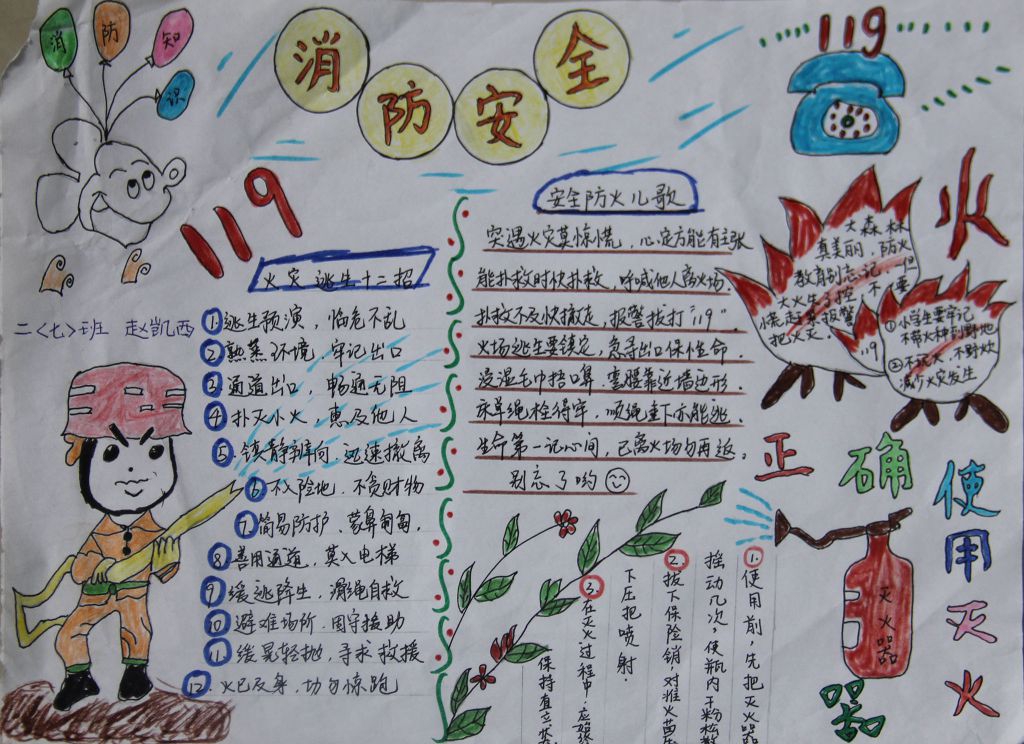 消 防 知 识
消 防 安 全
119
119
二<七>班 赵凯西
火灾逃生十二招
1.逃生预演，临危不乱
2 熟悉环境，牢记出口
3 通道出口，畅通无阻
4 扑灭小火，惠及他人
5.镇静辨向，迅速撤离
6 不入险地，不贪财物
7 简易防护，蒙鼻匍匐，
8 善用通道，莫入电梯
9 缓逃降生，滑绳自救
10 避难场所，固守援助
11 缓晃轻抛，寻求救援
12.火已及身，切勿惊跑
安全防火儿歌
突遇火灾莫惊慌，心定方能有主张
能扑救时快扑救，呼喊他人离火场
扑救不及快撤走，报警拔打"119"。
火场逃生要镇定，急寻出口保性命.
浸湿毛巾捂口鼻.靠墙边形.
床单绳栓得牢.顺绳垂下亦能逃.
生命第一记心间，已离火场勿再返。
别忘了哟
火
大森林
真美丽，防火
教育别忘记
大火
慌 报警
把火灭.
119
①小学生要牢记
不带火种到野地
②不玩火，不野炊
减少火灾发生
正确使用灭火器
灭火器
1.使用前，先把灭火器
摇动几次，使瓶内干粉松
2.拔下保险销，对准火苗
下压把喷射.
3.在灭火过程中.应
保持直立